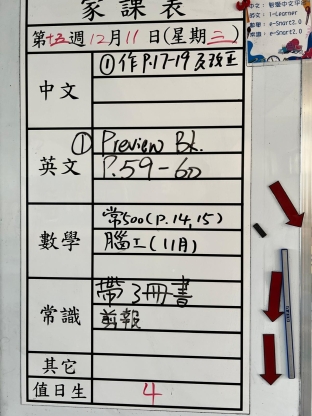 家課表
第十五週12月11日(星期三)
中文
①作P.17-19及改正
英文
① Preview Bk.
P.59-60
數學
常500(P.14,15)
腦工(11月)
常識
帶3冊書
剪報
其它
值日生
4
英文: i-Learner
數學: e-Smart2.0
常識: e-Smart2.0